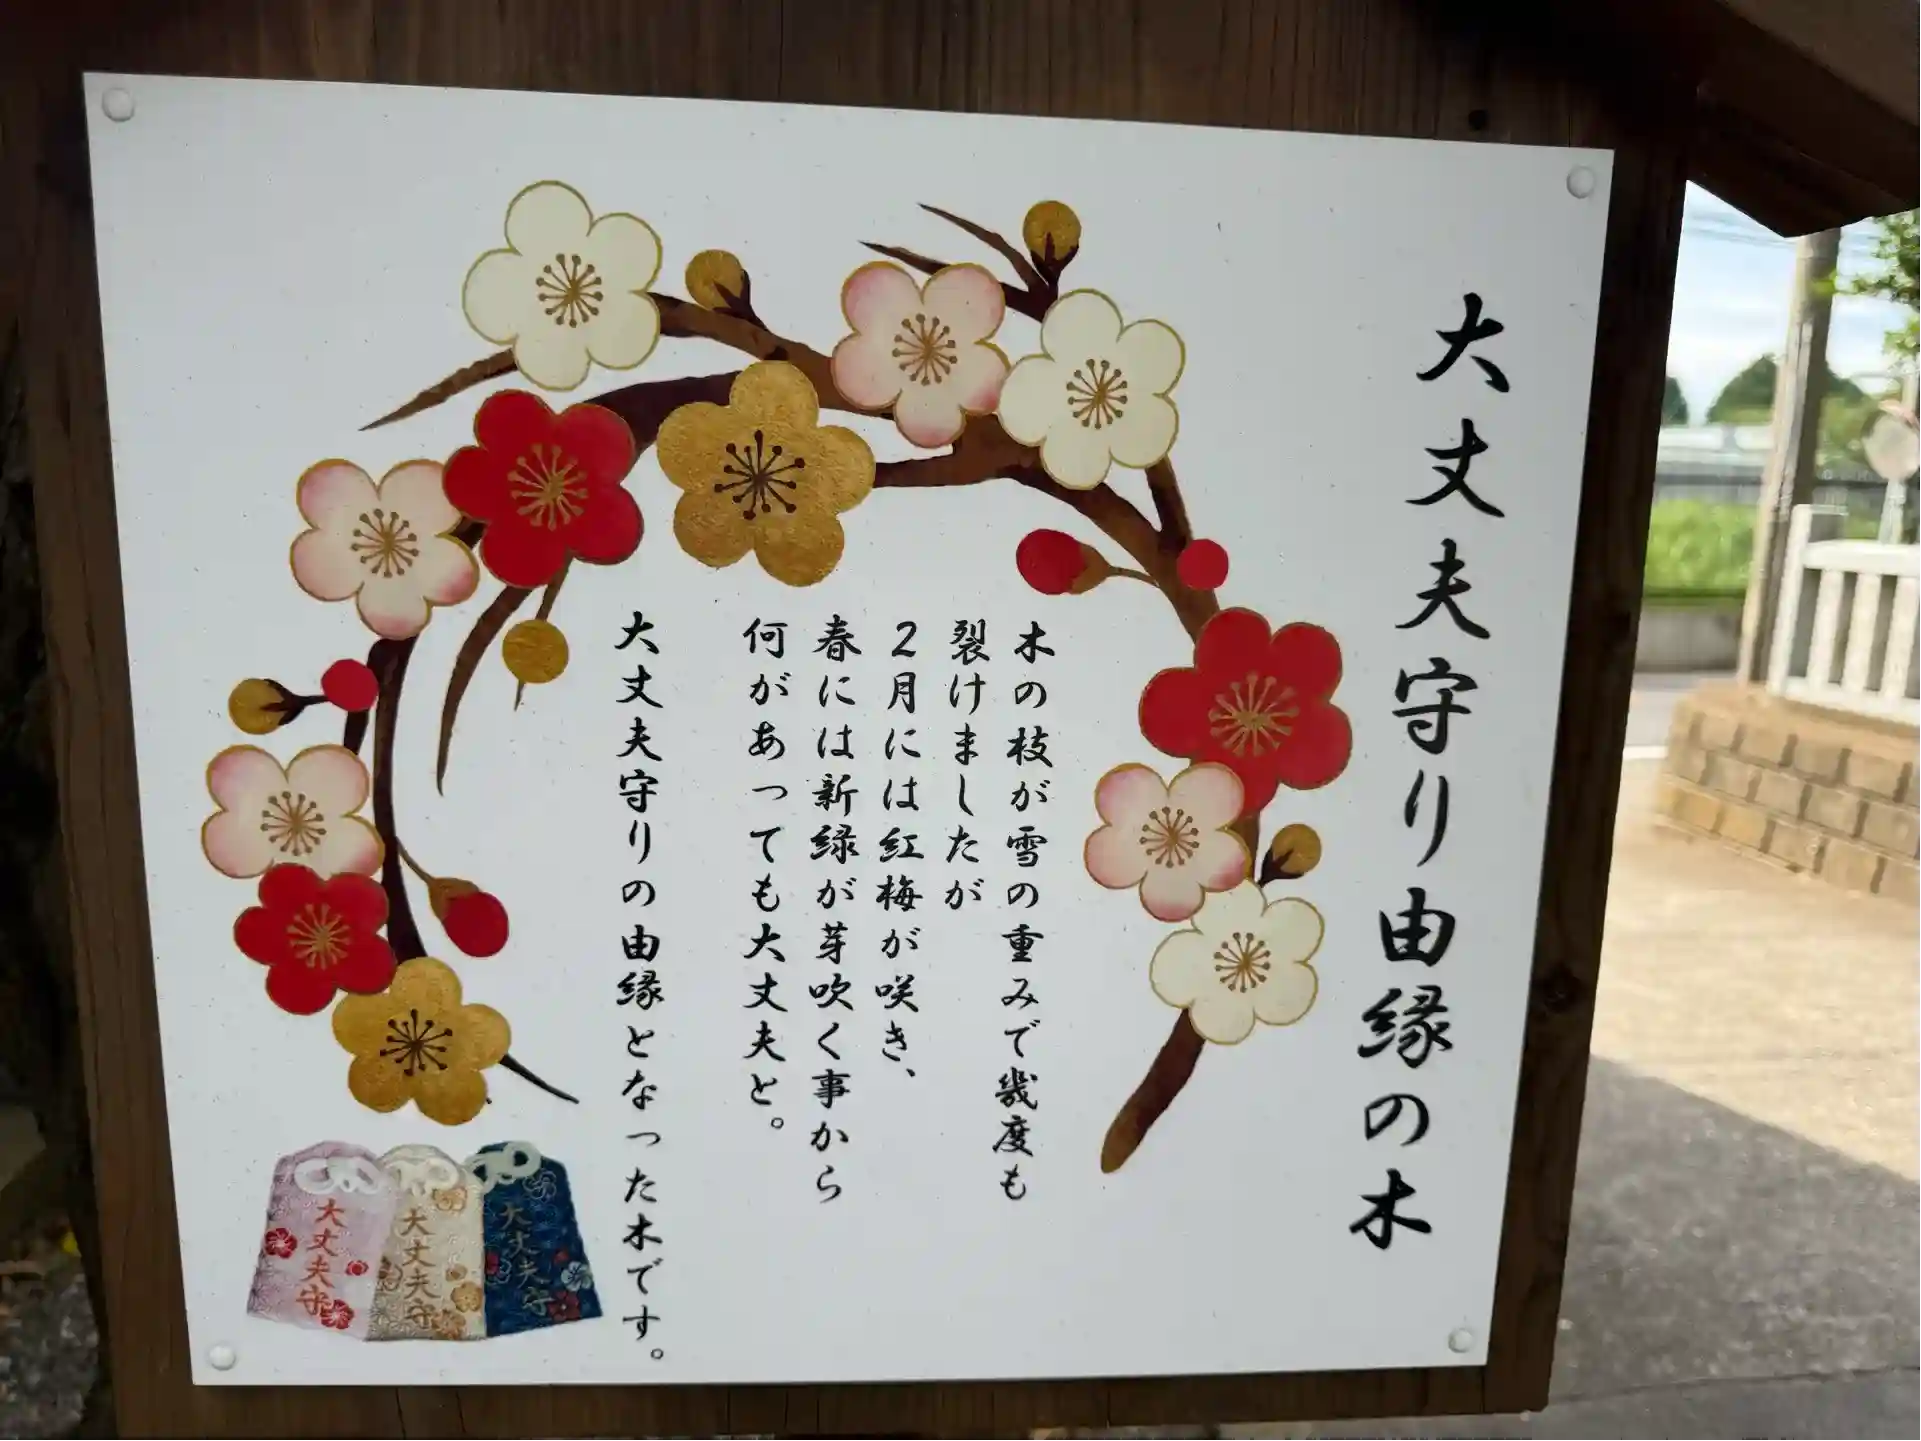 大丈夫守り由縁の木
木の枝が雪の重みで幾度も
裂けましたが
２月には紅梅が咲き、
春には新緑が芽吹く事から
何があっても大丈夫と。
大丈夫守りの由縁となった木です。
大丈夫守
大丈夫守
大丈夫守